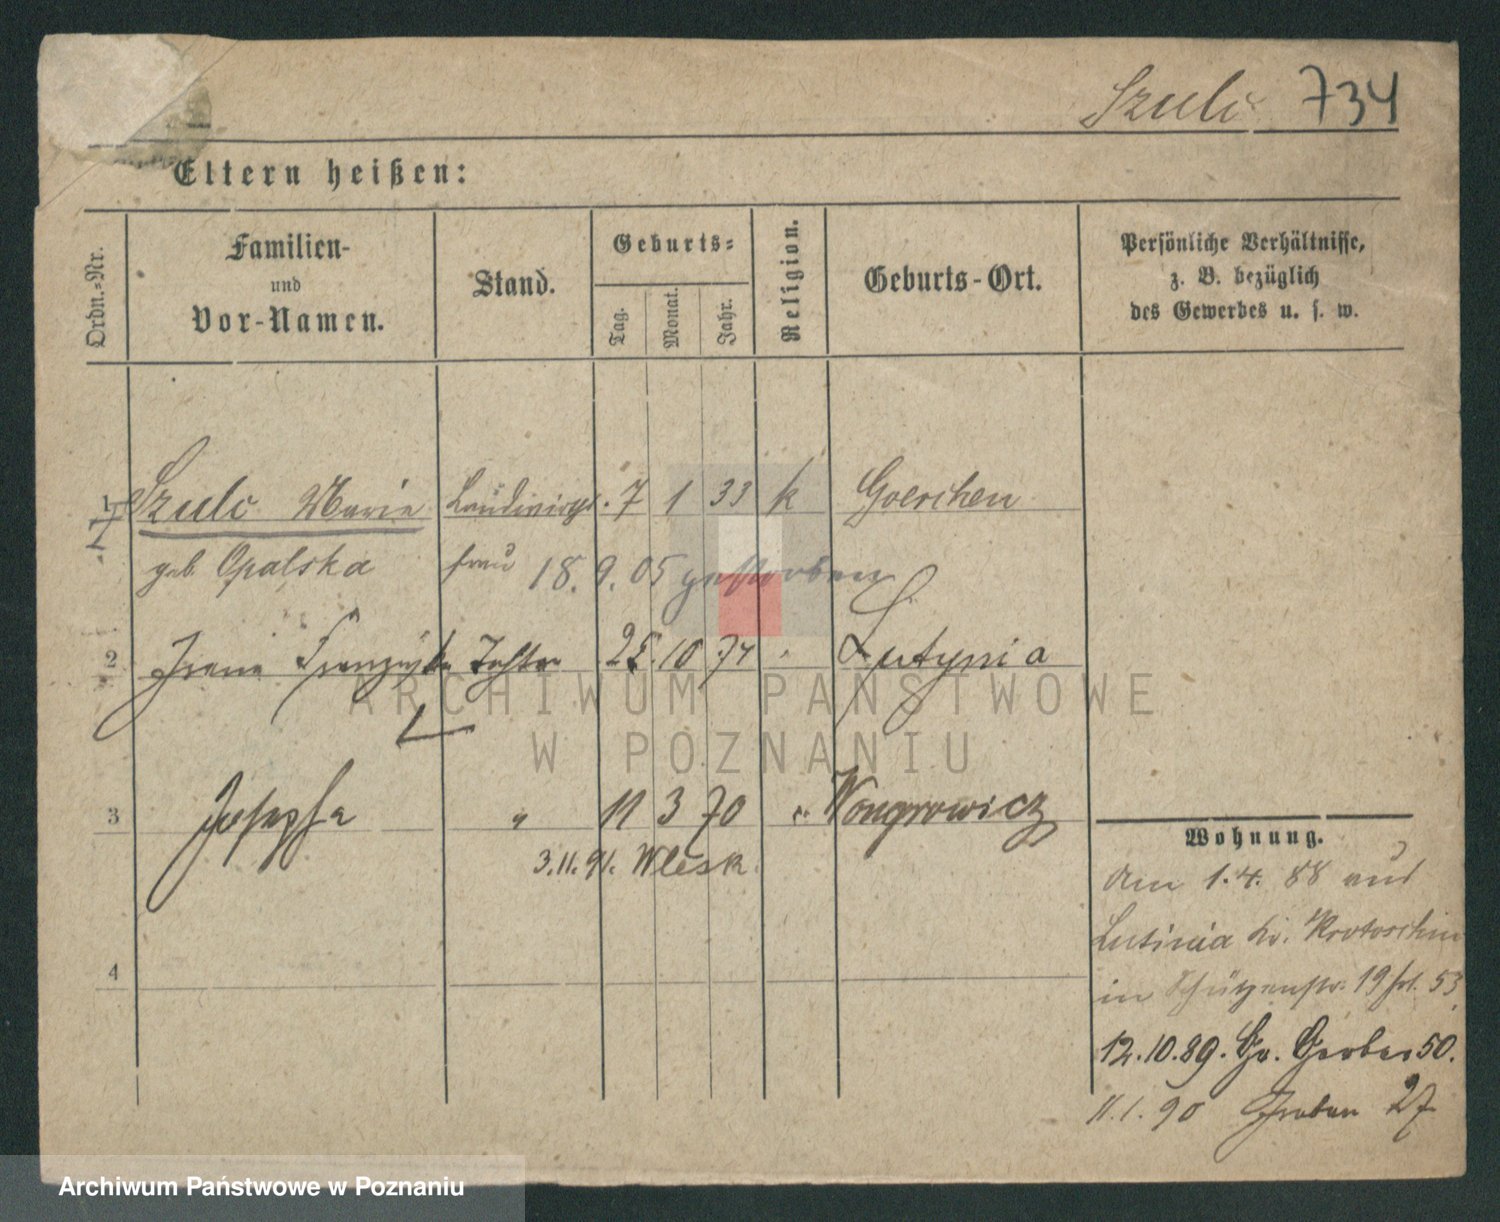 Szulc 734
Eltern heißen:
Ordn.-Nr.
Familien-
und
Vor-Namen.
Stand.
Geburts-
Tag.
Monat.
Jahr.
Religion.
Geburts-Ort.
Persönliche Verhältnisse,
z. B. bezüglich
des Gewerbes u. s. w.
1 Szulc Marie Landwirts 7 1 33 k Goerchen
geb. Opalska frau 18.9.05 gestorben
2 Franziska Tochter 25 10 74 " Lutynia
3 Josepha " 11 3 70 " Wongrowicz
3.11.91.
4
Wohnung.
Am 1.4.88 aus
Lutinia Kr. Krotoschin
in Schützenstr. 19 53
12.10.89. Gr. Gerber 50.
11.1.90 Graben 27
ARCHIWUM PAŃSTWOWE
W POZNANIU
Archiwum Państwowe w Poznaniu